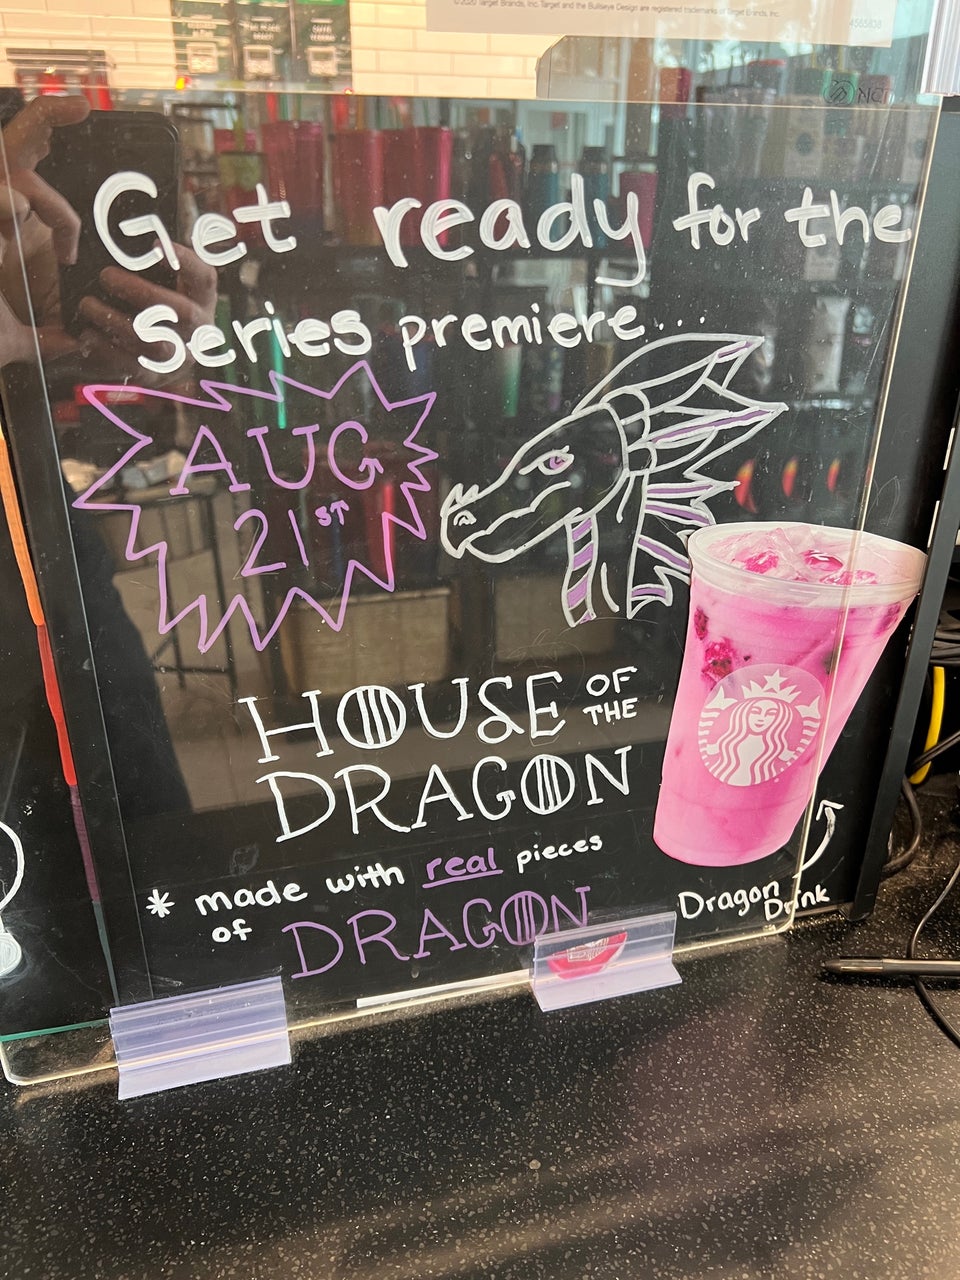 © 2020 Target Brands, Inc. Target and the Bullseye Design are registered trademarks of Target Brands, Inc.
4565838
Get ready for the
Series premiere...
AUG
21ST
HOUSE OF THE
DRAGON
* made with real pieces
of DRAGON
Dragon
Drink